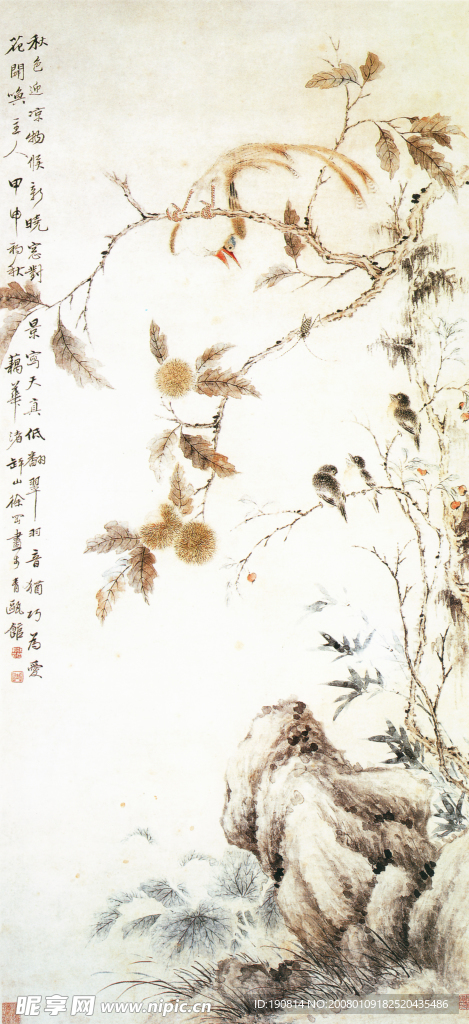 秋色迎凉物候新晓窓對景寫天真低翻翠羽音猶巧為愛
花開喚主人 甲申初秋 藕華渚 山徐 畫于青 館
昵享网 www.nipic.cn
ID:190814 NO:20080109182520435486